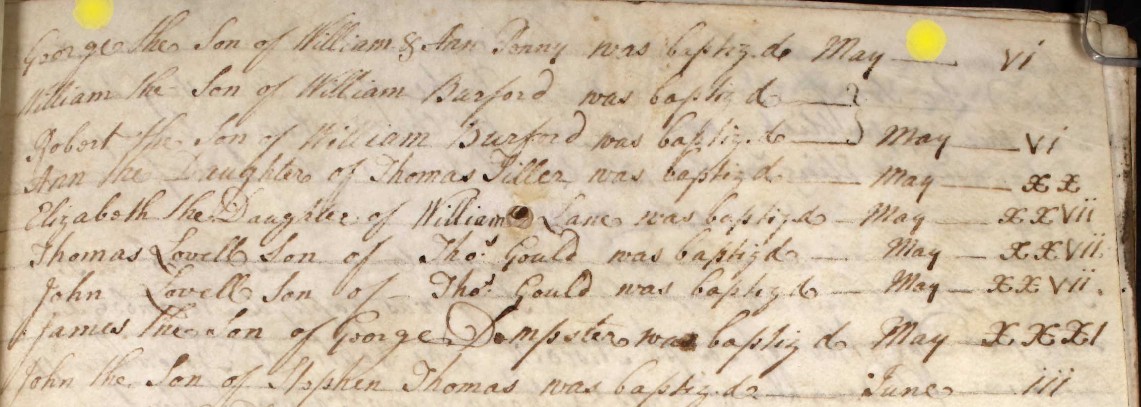 George the Son of William & Ann Penny was baptiz'd May — vi
William the Son of William Burford was baptiz'd —
Robert the Son of William Burford was baptiz'd — May — vi
Ann the Daughter of Thomas Tiller was baptiz'd — May — xx
Elizabeth the Daughter of William Lane was baptiz'd — May — xxvii
Thomas Lovell Son of Thos. Gould was baptiz'd — May — xxvii
John Lovell Son of Thos. Gould was baptiz'd — May — xxvii.
James the Son of George Dempster was baptiz'd May xxxi
John the Son of Stephen Thomas was baptiz'd — June — iii